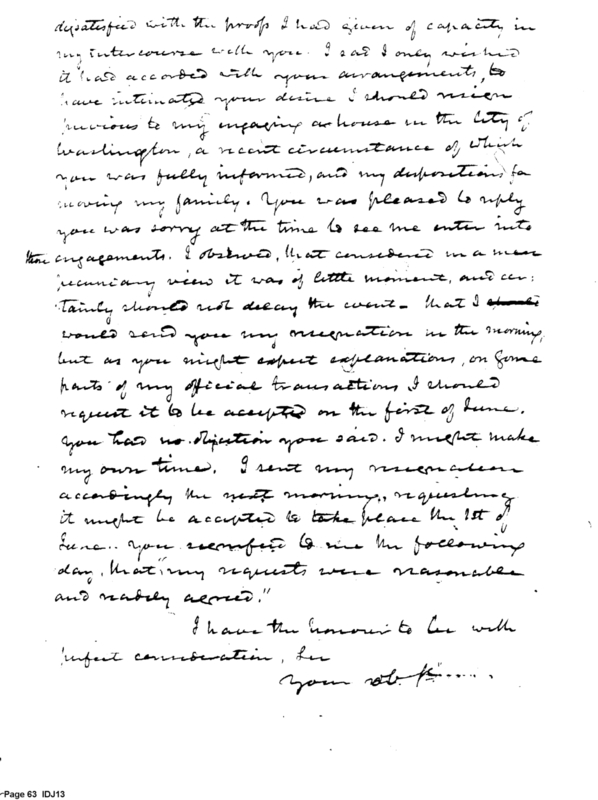 dissatisfied with the proofs I had given of capacity in
my intercourse with you. I said I only wished
it had accorded with your arrangements, to
have intimated your desire I should resign
previous to my engaging a house in the City of
Washington, a recent circumstance of which
you was fully informed, and my dispositions for
moving my family. You was pleased to reply
you was sorry at the time to see me enter into
those engagements. I observed, that considered in a mere
pecuniary view it was of little moment, and cer:
tainly should not delay the event - that I should
would send you my resignation in the morning,
but as you might expect explanations, on some
parts of my official transactions I should
request it to be accepted on the first of June.
You had no objection you said. I might make
my own time. I sent my resignation
accordingly the next morning, requesting
it might be accepted to take place the 1st of
June.. You to me the following
day, that "my requests were reasonable
and readily agreed."
I have the honour to be with
perfect consideration, Sir
Your ob.
Page 63 IDJ13